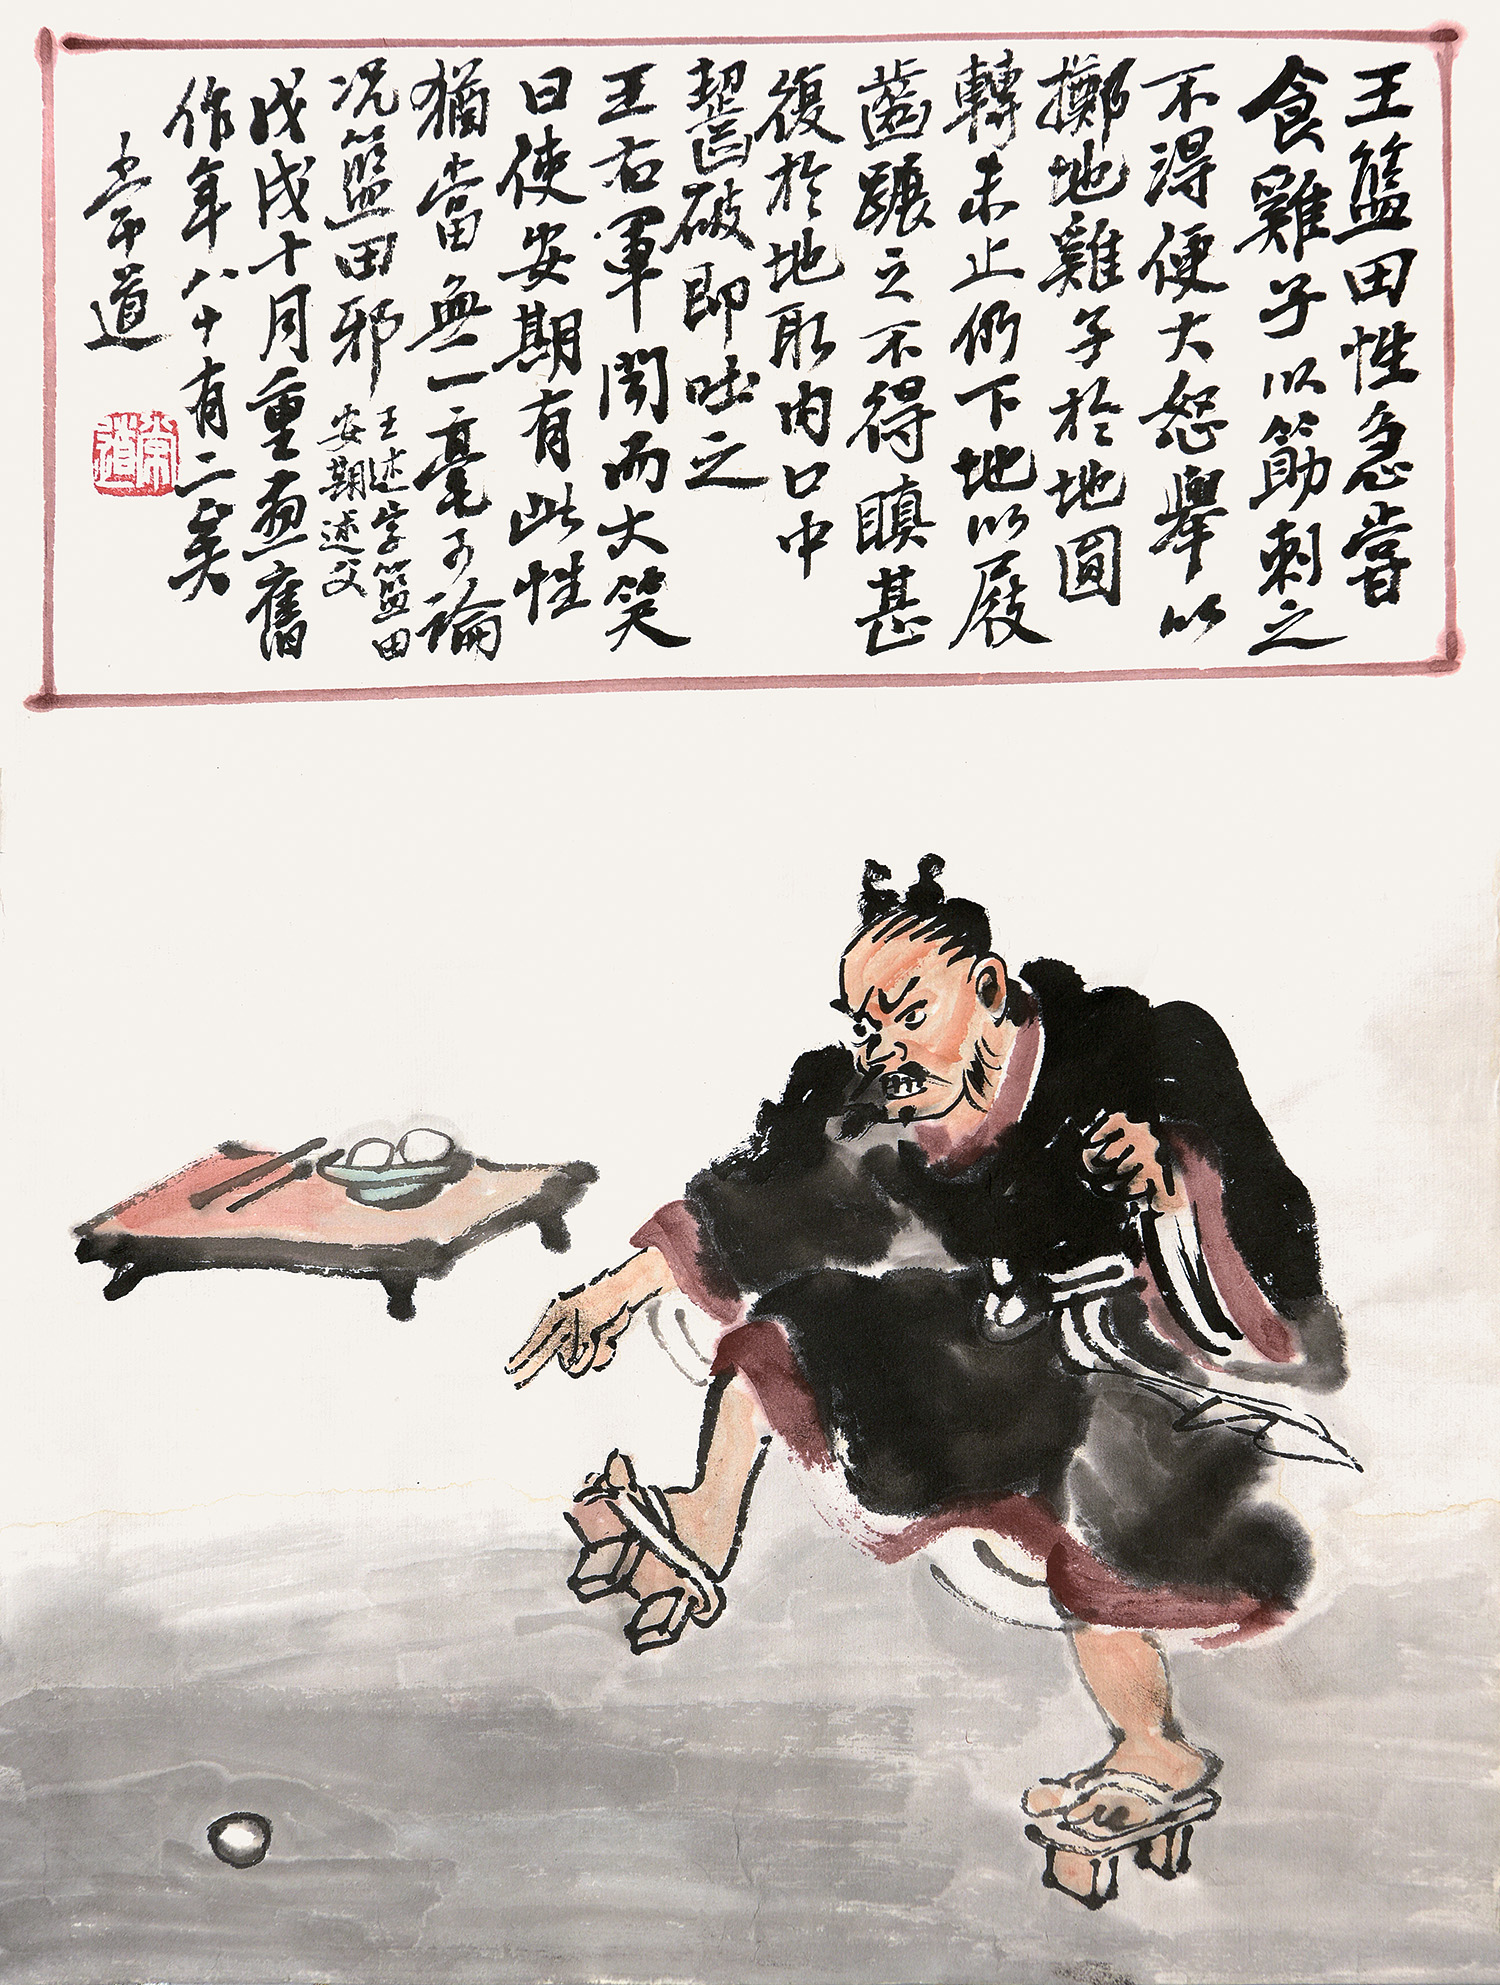 王籃田性急嘗
食雞子以筯刺之
不得便大怒舉以
擲地雞子於地圓
轉未止仍下地以屐
齒蹍之不得瞋甚
復於地取内口中
齧破即吐之
王右軍聞而大笑
曰使安期有此性
猶當無一豪可論
况籃田邪
王述字籃田
安期述父
戊戌十月重畫舊
作年八十有二矣
常道
常道